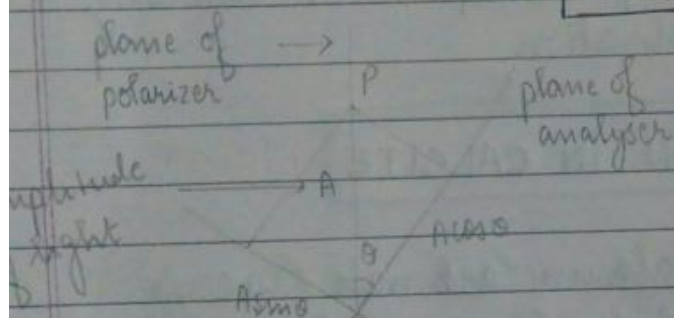 plane of →
polarizer
P
plane of
analyser
amplitude → A
of light
θ
A cosθ
A sinθ